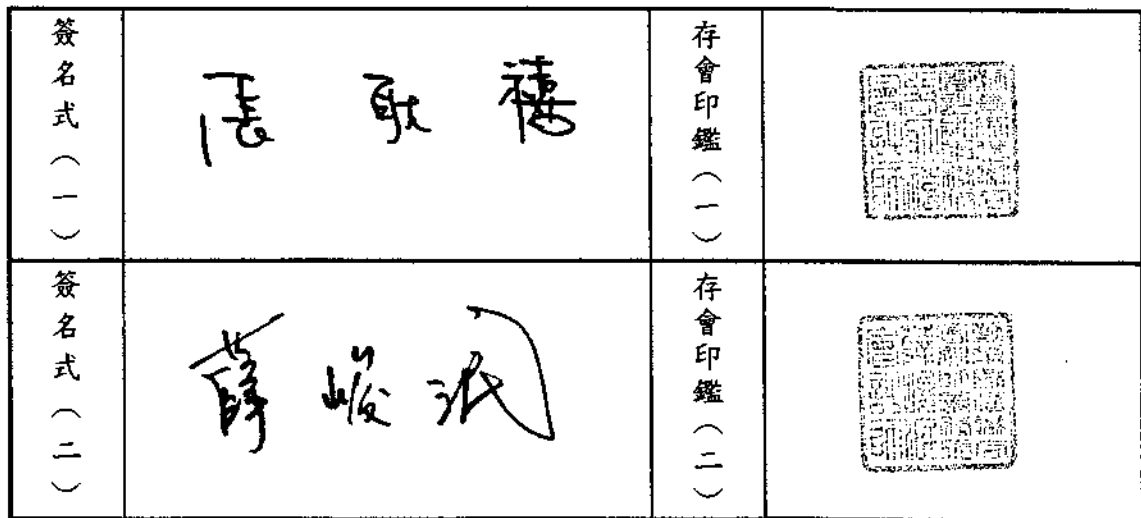 簽名式（一）
張耿禧
存會印鑑（一）
簽名式（二）
薛峻泯
存會印鑑（二）